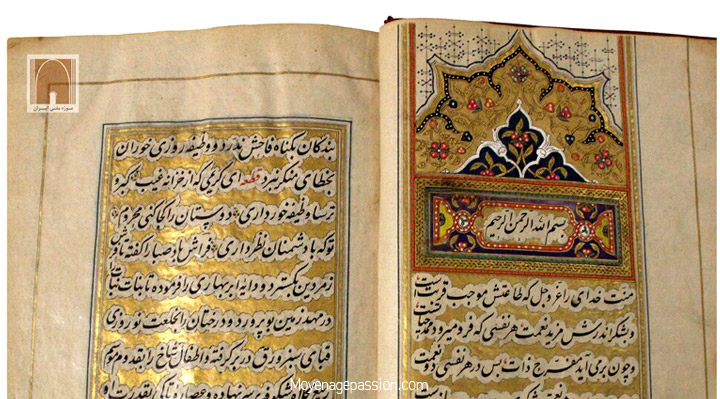 موزه ملی ایران
بسم الله الرحمن الرحیم
منت خدای را عز و جل که طاعتش موجب قربتست
و بشکر اندرش مزید نعمت هر نفسی که فرو میرود ممد
و چون بر می آید مفرح ذات پس در هر نفسی دو نعمت
بندگان بگناه فاحش ندرد و وظیفه روزی خوران
بخطای منکر نبرد قطعه ای کریمی که از خزانه غیب گبر و
ترسا وظیفه خور داری دوستان را کجا کنی محروم
تو که با دشمنان نظر داری فراش باد صبا را گفته تا فرش
زمردین بگسترد و دایه ابر بهاری را فرموده تا بنات نبات
در مهد زمین بپرورد و درختان را بخلعت نوروزی
قبای سبز ورق در بر گرفته و اطفال شاخ را بقدوم موسم
ربیع کلاه شکوفه بر سر نهاده و عصاره تاکی بقدرت او
Moyenagepassion.com